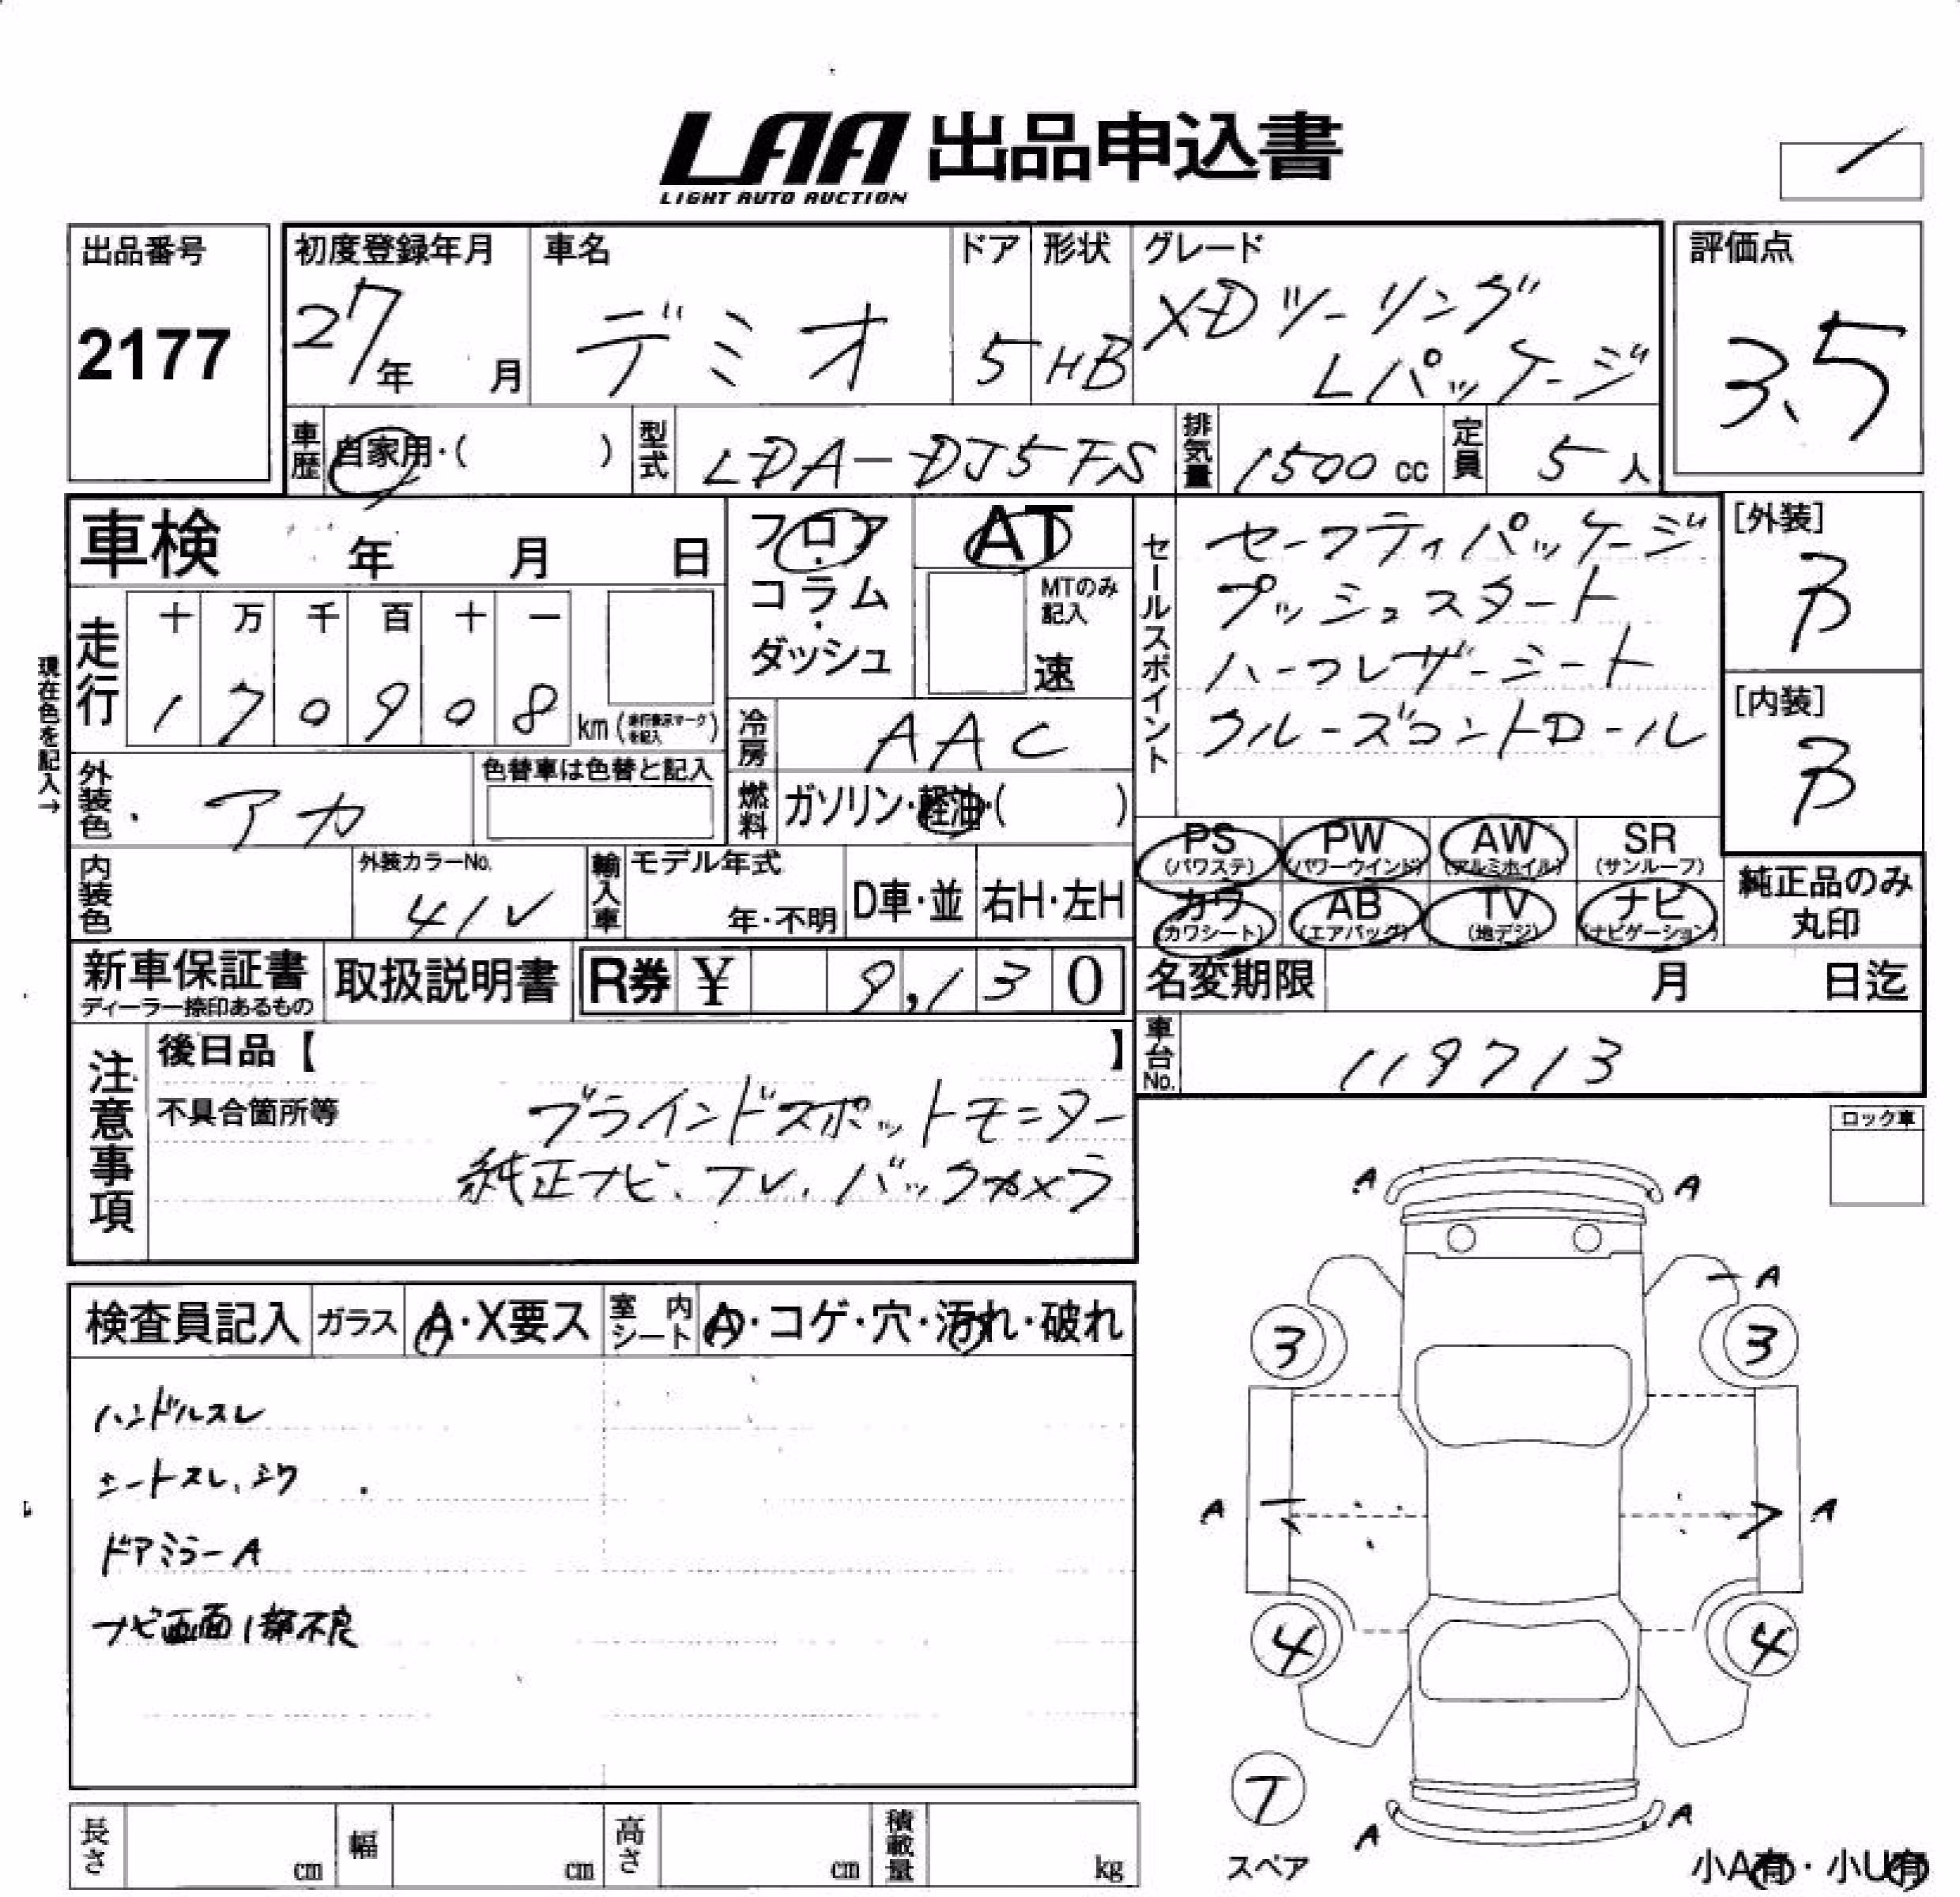 LAA 出品申込書
LIGHT AUTO AUCTION
出品番号
2177
初度登録年月
27年 月
車名
デミオ
ドア
5
形状
HB
グレード
XDツーリング
Lパッケージ
評価点
3.5
車歴 自家用・( )
型式 LDA-DJ5FS
排気量 1500 cc
定員 5 人
車検 年 月 日
フロア・コラム・ダッシュ
AT
MTのみ記入
速
セールスポイント
セーフティパッケージ
プッシュスタート
ハーフレザーシート
クルーズコントロール
[外装]
B
[内装]
B
現在色を記入→
走行
十 万 千 百 十 一
1 7 0 9 0 8 km
冷房 AAC
外装色 アカ
色替車は色替と記入
燃料 ガソリン・軽油・( )
PS (パワステ)
PW (パワーウインド)
AW (アルミホイル)
SR (サンルーフ)
カワ (カワシート)
AB (エアバッグ)
TV (地デジ)
ナビ (ナビゲーション)
純正品のみ丸印
内装色
外装カラーNo.
41V
輸入車
モデル年式
年・不明
D車・並
右H・左H
新車保証書
ディーラー捺印あるもの
取扱説明書
R券 ¥ 9,130
名変期限 月 日迄
車台No. 119713
注意事項
後日品【 】
不具合箇所等
ブラインドスポットモニター
純正ナビ、TV、バックカメラ
ロック車
検査員記入
ガラス A・X要ス
室内シート A・コゲ・穴・汚れ・破れ
ハンドルスレ
シートスレ、シワ
ドアミラーA
ナビ画面1部不良
A A
A
3 3
A A
4 4
T
スペア
A A
小A有・小U有
長さ cm
幅 cm
高さ cm
積載量 kg